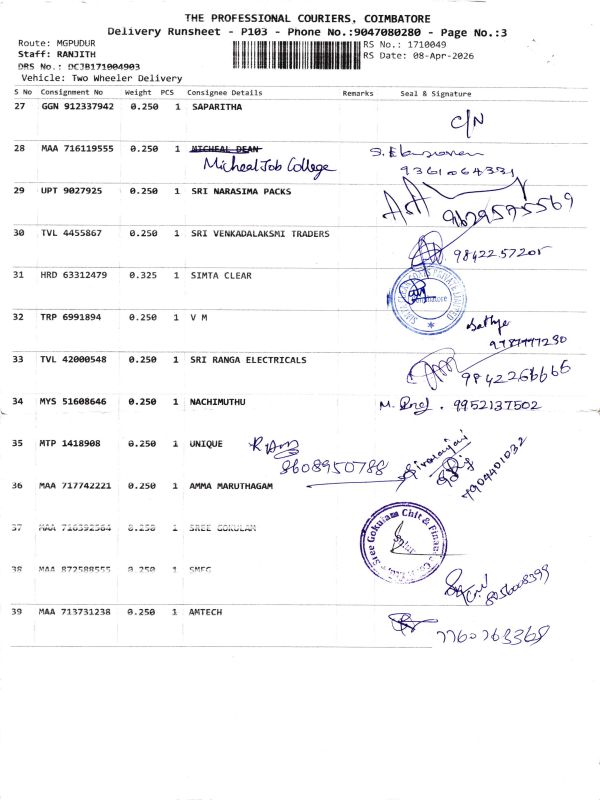 THE PROFESSIONAL COURIERS, COIMBATORE
Delivery Runsheet - P103 - Phone No.:9047080280 - Page No.:3
Route: MGPUDUR
RS No.: 1710049
Staff: RANJITH
RS Date: 08-Apr-2026
DRS No.: DCJB171004903
Vehicle: Two Wheeler Delivery
S No Consignment No Weight PCS Consignee Details Remarks Seal & Signature
27 GGN 912337942 0.250 1 SAPARITHA
C/N
28 MAA 716119555 0.250 1 MICHEAL DEAN
Micheal Job College
9361064331
29 UPT 9027925 0.250 1 SRI NARASIMA PACKS
9629575569
30 TVL 4455867 0.250 1 SRI VENKADALAKSMI TRADERS
9842257205
31 HRD 63312479 0.325 1 SIMTA CLEAR
Coimbatore
32 TRP 6991894 0.250 1 V M
Sathya
33 TVL 42000548 0.250 1 SRI RANGA ELECTRICALS
9842266666
34 MYS 51608646 0.250 1 NACHIMUTHU
9952137502
35 MTP 1418908 0.250 1 UNIQUE
8608950788
7904401032
36 MAA 717742221 0.250 1 AMMA MARUTHAGAM
37 MAA 716392564 0.250 1 SREE GOKULAM
Sree Gokulam Chit & Finance
38 MAA 872588555 0.250 1 SMFG
8056008399
39 MAA 713731238 0.250 1 AMTECH
7760763368